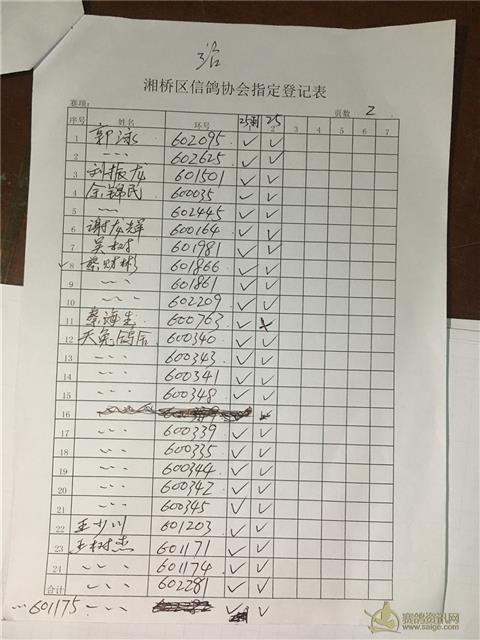 湘桥区信鸽协会指定登记表
赛项: 页数 2
序号 姓名 环号 25 25 3 4 5 6 7
1 郭泳 602095 ✓ ✓
2 〃 602625 ✓ ✓
3 刘振龙 601501 ✓ ✓
4 余锦民 600035 ✓ ✓
5 〃 602445 ✓ ✓
6 谢龙辉 600164 ✓ ✓
7 吴树 601981 ✓ ✓
✓ 8 蔡财彬 601866 ✓ ✓
9 〃 601861 ✓ ✓
10 〃 602209 ✓ ✓
11 蔡海 600763 ✓ ✗
12 天兔鸽舍 600340 ✓ ✓
13 〃 600343 ✓ ✓
14 〃 600341 ✓ ✓
15 〃 600348 ✓ ✓
16
17 〃 600339 ✓ ✓
18 〃 600335 ✓ ✓
19 〃 600344 ✓ ✓
20 〃 600342 ✓ ✓
21 〃 600345 ✓ ✓
22 王少川 601203 ✓ ✓
23 王树杰 601171 ✓ ✓
24 〃 601174 ✓ ✓
合计 〃 602281 ✓ ✓
601175 〃 ✓ ✓
赛鸽资讯网
www.saige.com